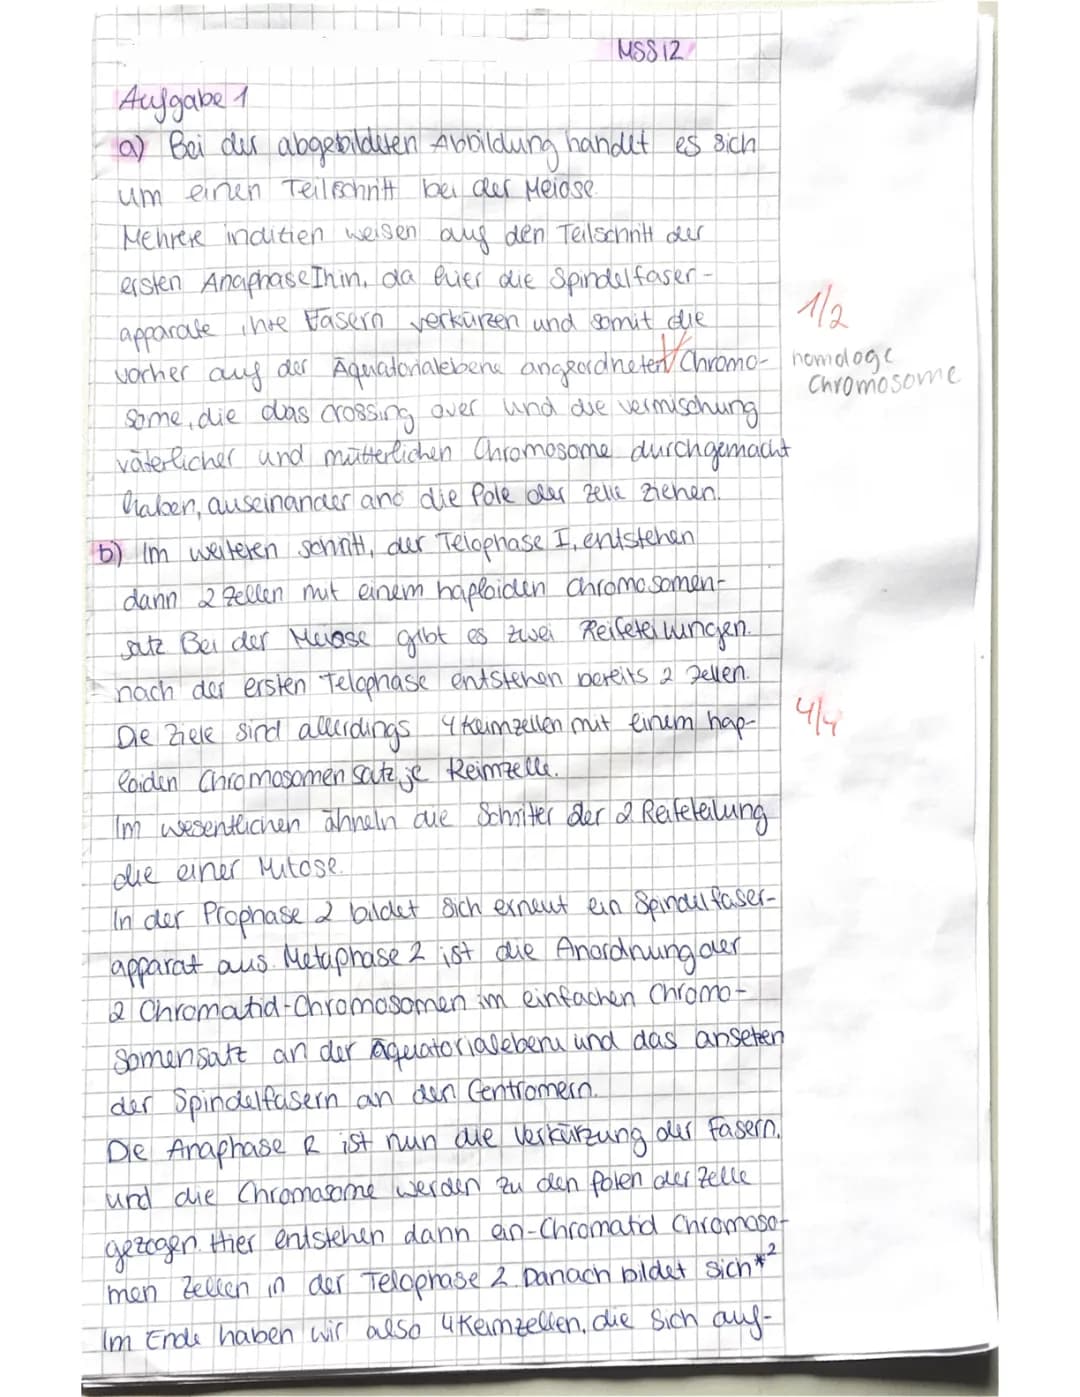 MSS12
Aufgabe 1
a) Bei der abgebildeten Abbildung handelt es sich
um einen Teilschritt bei der Meiose
Mehrere indizien weisen auf den Teilschritt der
ersten Anaphase I hin, da hier die Spindelfaser-
apparate ihre Fasern verkürzen und somit die
1/2
vorher auf der Äquatorialebene angeordneten Chromo-
homologe
Chromosome
some, die das crossing over und die vermischung
väterlicher und mütterlichen Chromosome durchgemacht
haben, auseinander and die Pole der Zelle ziehen.
b) Im weiteren schritt, der Telophase I, entstehen
dann 2 Zellen mit einem haploiden Chromosomen-
satz Bei der Meiose gibt es zwei Reifeteilungen.
nach der ersten Telophase entstehen bereits 2 Zellen.
Die Ziele sind allerdings 4 Keimzellen mit einem hap-
4/4
loiden Chromosomensatz je Keimzelle.
Im wesentlichen ähneln die Schritter der 2 Reifeteilung
die einer Mitose.
In der Prophase 2 bildet sich erneut ein Spindelfaser-
apparat aus. Metaphase 2 ist die Anordnung der
2 Chromatid-Chromosomen im einfachen Chromo-
somensatz an der Äquatorialebene und das anseten
der Spindelfasern an den Centromern.
Die Anaphase 2 ist nun die Verkürzung der Fasern,
und die Chromosome werden zu den Polen der Zelle
gezogen. Hier entstehen dann ein-Chromatid Chromoso-
men Zellen in der Telophase 2. Danach bildet sich *2
Im Ende haben wir also 4 Keimzellen, die sich auf-